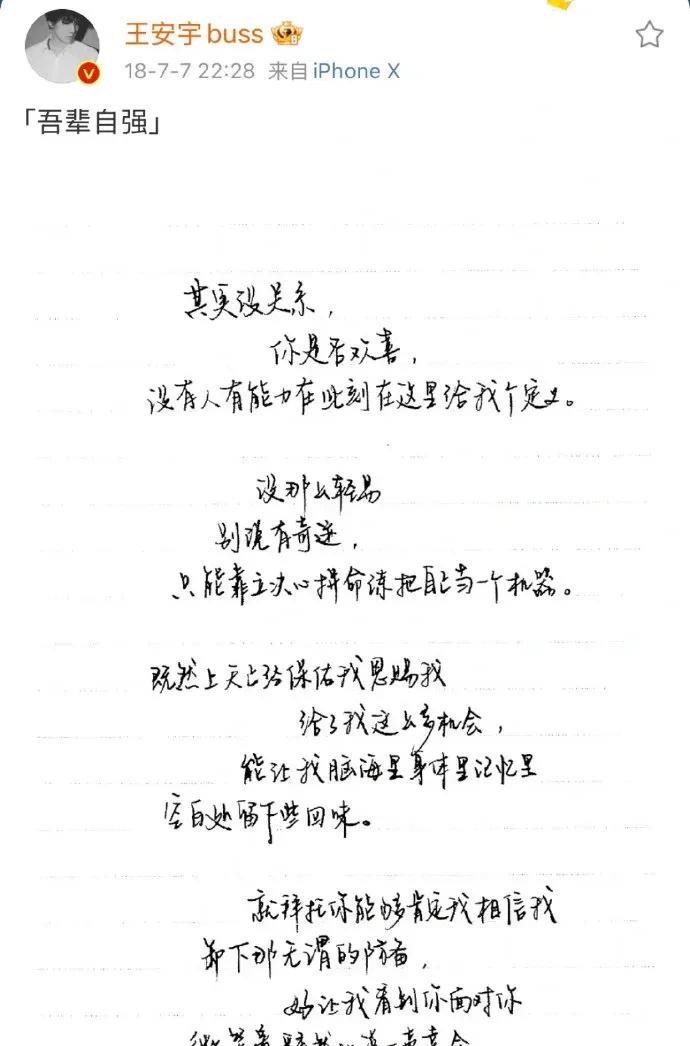 王安宇buss
18-7-7 22:28 来自 iPhone X
「吾辈自强」
其实没关系，
你是否欢喜，
没有人有能力在此刻在这里给我个定义。
没那么轻易
别说有奇迹，
只能靠立决心拼命练把自己当一个机器。
既然上天已经保佑我恩赐我
给了我这么多机会，
能让我脑海里身体里记忆里
空白处留下些回味。
就拜托你能够肯定我相信我
卸下那无谓的防备，
好让我看到你面对你